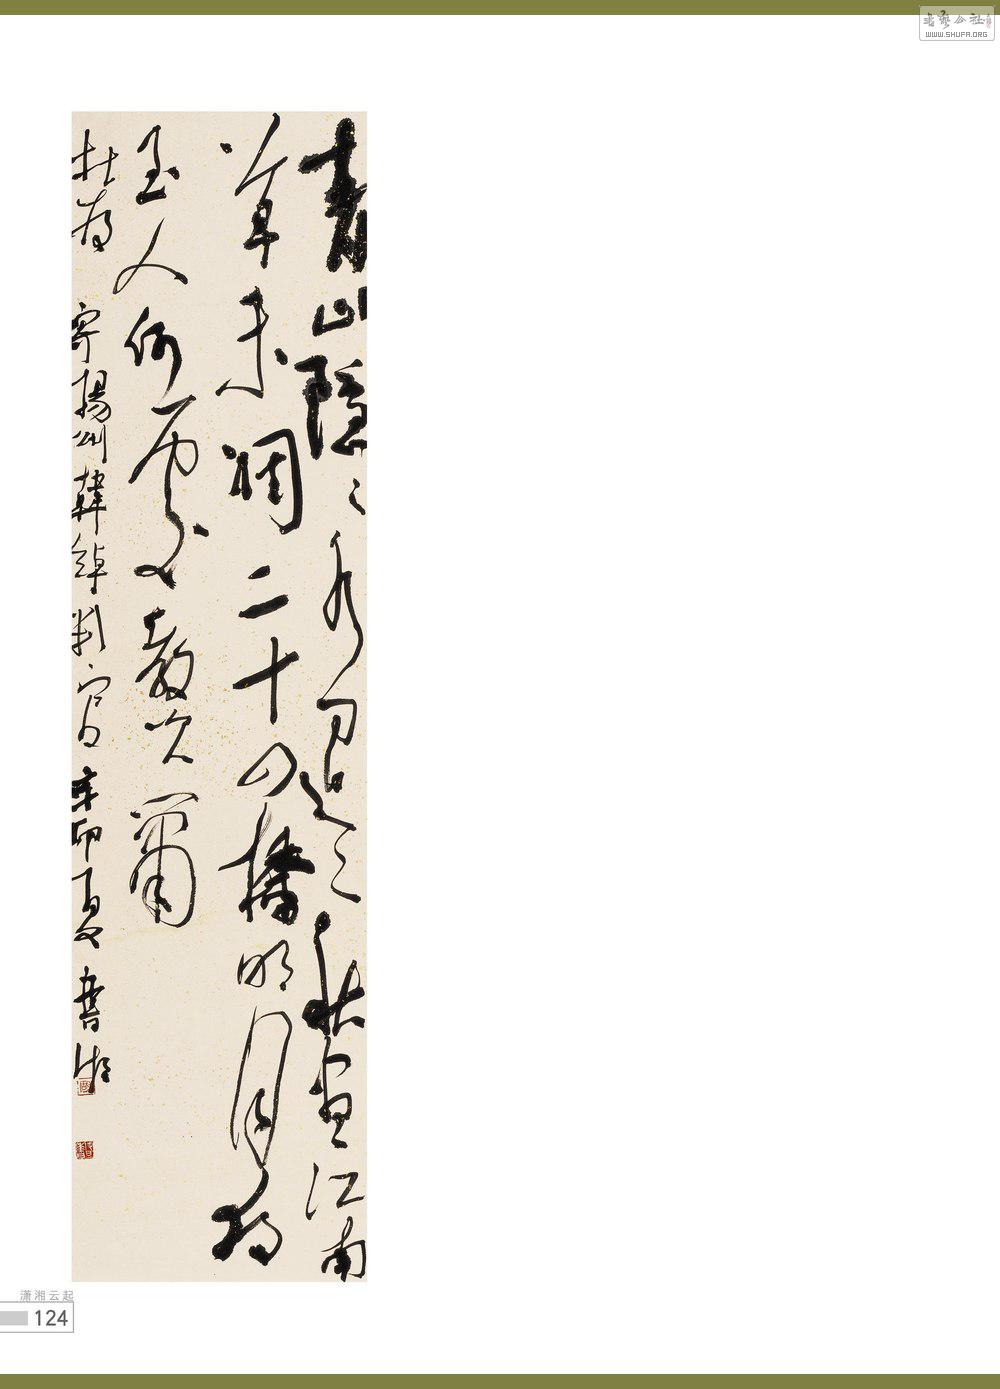 青山隐〻水迢〻秋尽江南
草未凋二十四桥明月夜
玉人何處教吹箫
杜牧寄揚州韓绰判官辛卯夏書
潇湘云起
124
WWW.SHUFA.ORG